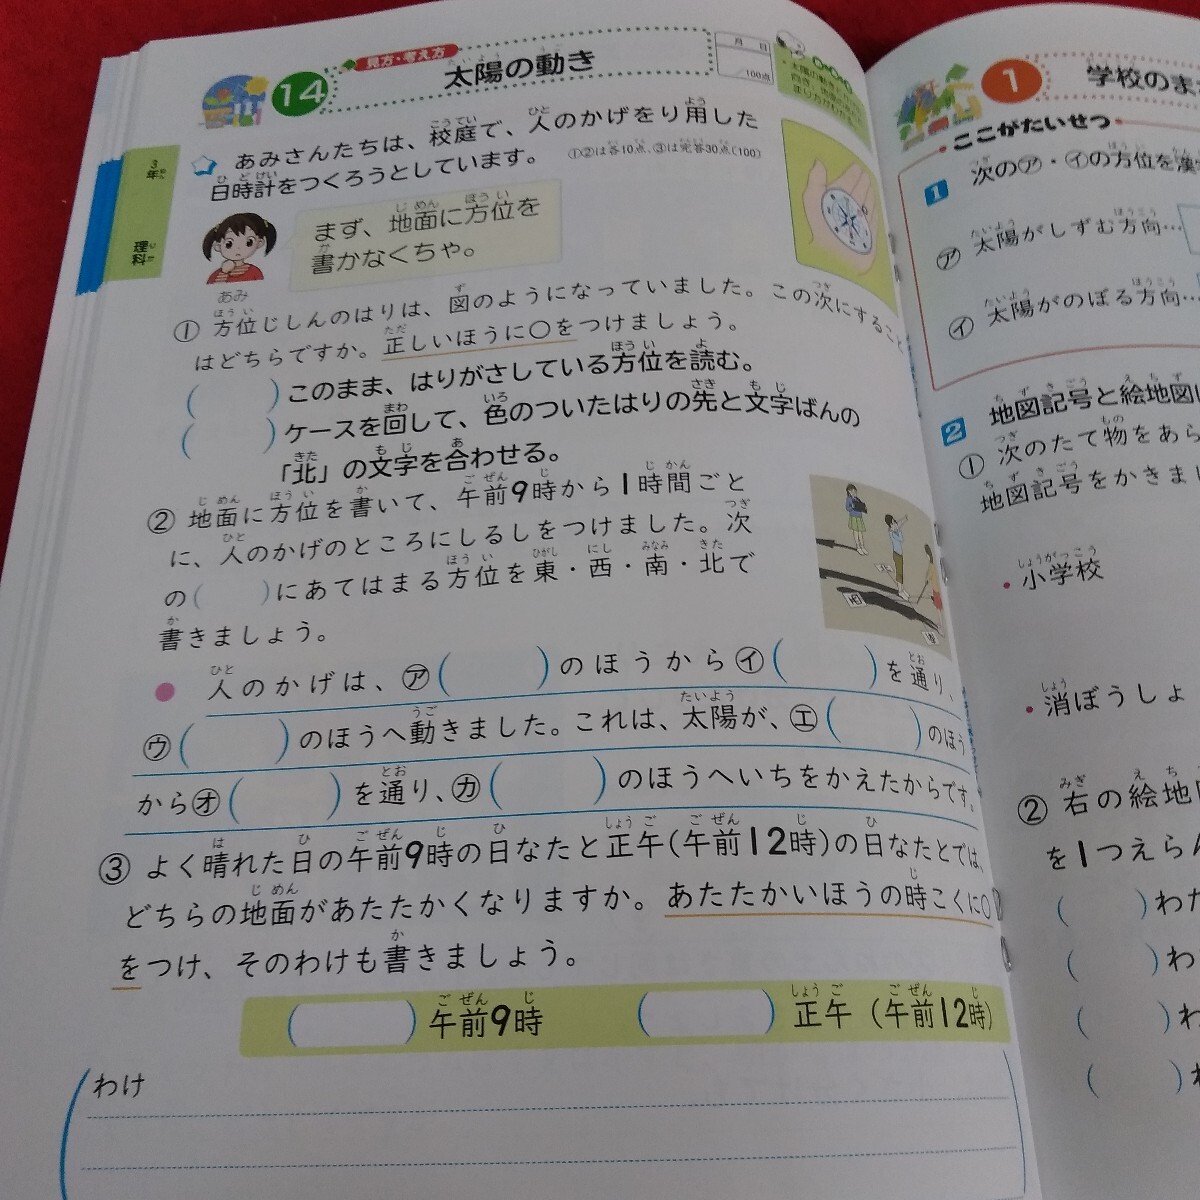 14
見方・考え方
太陽の動き
月 日
100点
あみさんたちは、校庭で、人のかげをり用した
日時計をつくろうとしています。
①②は各10点、③は完答30点(100)
3年
理科
まず、地面に方位を
書かなくちゃ。
あみ
① 方位じしんのはりは、図のようになっていました。この次にすること
はどちらですか。正しいほうに○をつけましょう。
( )このまま、はりがさしている方位を読む。
( )ケースを回して、色のついたはりの先と文字ばんの
「北」の文字を合わせる。
② 地面に方位を書いて、午前9時から1時間ごと
に、人のかげのところにしるしをつけました。次
の( )にあてはまる方位を東・西・南・北で
書きましょう。
● 人のかげは、㋐( )のほうから㋑( )を通り、
㋒( )のほうへ動きました。これは、太陽が、㋓( )のほう
から㋔( )を通り、㋕( )のほうへいちをかえたからです。
③ よく晴れた日の午前9時の日なたと正午(午前12時)の日なたとでは、
どちらの地面があたたかくなりますか。あたたかいほうの時こくに○
をつけ、そのわけも書きましょう。
( )午前9時 ( )正午(午前12時)
わけ
1
学校のま
ここがたいせつ
1 次の㋐・㋑の方位を漢
㋐ 太陽がしずむ方向…
㋑ 太陽がのぼる方向…
2 地図記号と絵地図
① 次のたて物をあら
地図記号をかきま
・小学校
・消ぼうしょ
② 右の絵地
を1つえらん
( )わた
( )わ
( )わ
( )わ